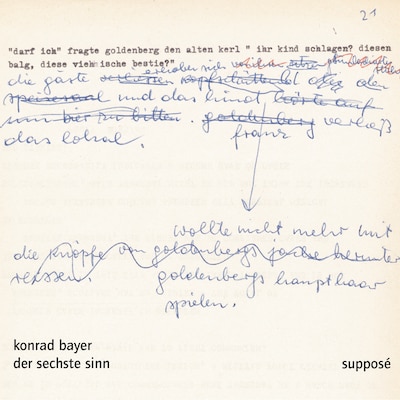 21
"darf ich" fragte goldenberg den alten kerl " ihr kind schlagen? diesen
balg, diese viehische bestie?"
erhoben sich
die gäste verliessen kopfschüttelnd den
speisesaal und das kind, hörte auf
um bier zu bitten. goldenberg verließ
franz
das lokal.
wollte nicht mehr mit
die knöpfe von goldenbergs jacke herunter
reissen. goldenbergs haupthaar
spielen.
konrad bayer
der sechste sinn
supposé